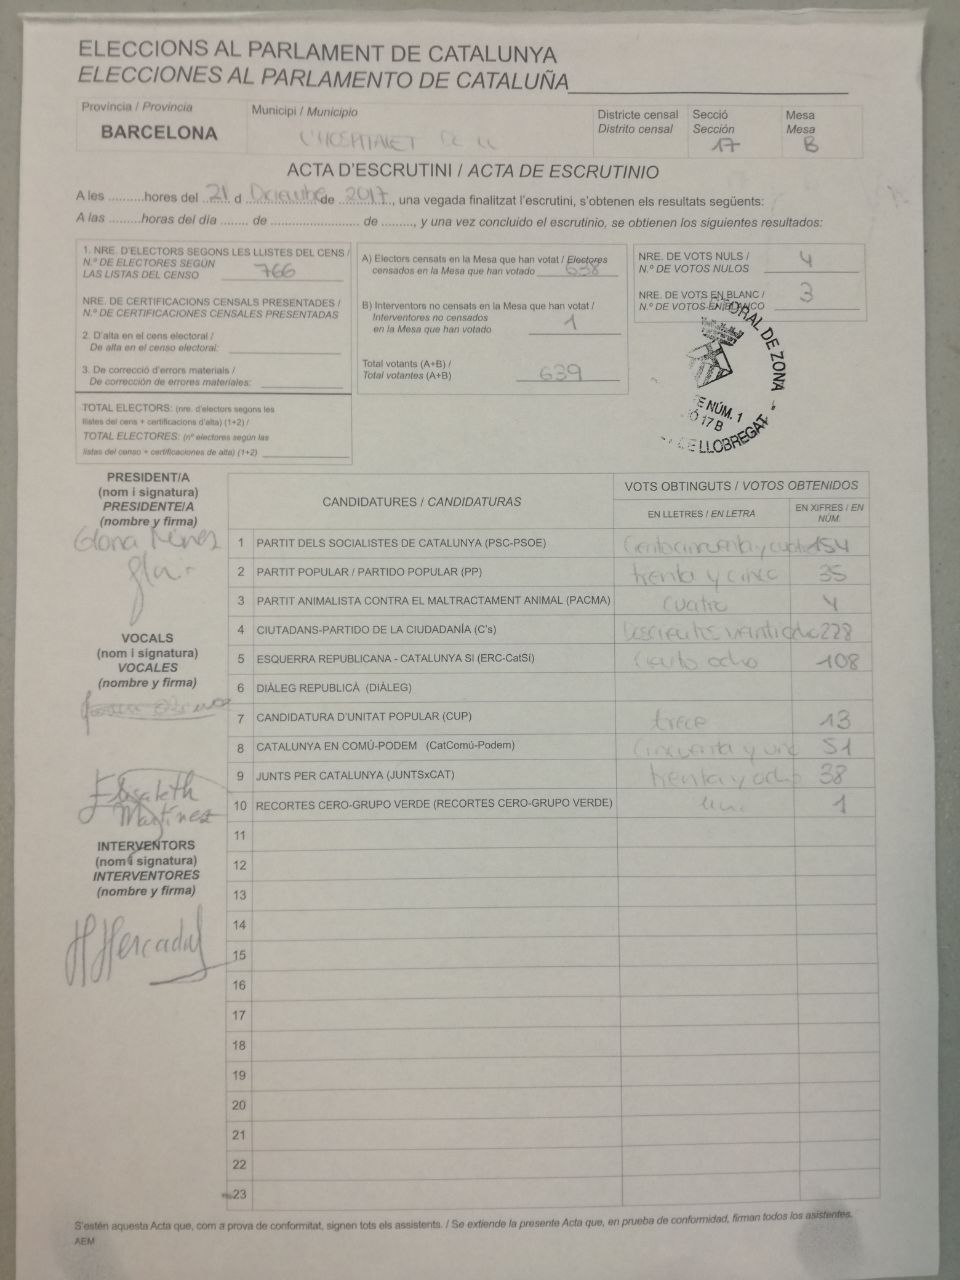 ELECCIONS AL PARLAMENT DE CATALUNYA
ELECCIONES AL PARLAMENTO DE CATALUÑA
Província / Provincia
BARCELONA
Municipi / Municipio
L'HOSPITALET DE LL
Districte censal
Distrito censal
Secció
Sección
17
Mesa
Mesa
B
ACTA D'ESCRUTINI / ACTA DE ESCRUTINIO
A les .........hores del ..21. d Diciembre de ..2017.., una vegada finalitzat l'escrutini, s'obtenen els resultats següents:
A las .........horas del día ........ de ......................... de ........, y una vez concluido el escrutinio, se obtienen los siguientes resultados:
1. NRE. D'ELECTORS SEGONS LES LLISTES DEL CENS /
N.º DE ELECTORES SEGÚN
LAS LISTAS DEL CENSO 766
NRE. DE CERTIFICACIONS CENSALS PRESENTADES /
N.º DE CERTIFICACIONES CENSALES PRESENTADAS
2. D'alta en el cens electoral /
De alta en el censo electoral:
3. De correcció d'errors materials /
De corrección de errores materiales:
TOTAL ELECTORS: (nre. d'electors segons les
llistes del cens + certificacions d'alta) (1+2) /
TOTAL ELECTORES: (nº electores según las
listas del censo + certificaciones de alta) (1+2)
A) Electors censats en la Mesa que han votat / Electores
censados en la Mesa que han votado 638
B) Interventors no censats en la Mesa que han votat /
Interventores no censados
en la Mesa que han votado 1
Total votants (A+B) /
Total votantes (A+B) 639
NRE. DE VOTS NULS /
N.º DE VOTOS NULOS 4
NRE. DE VOTS EN BLANC /
N.º DE VOTOS EN BLANCO 3
ORAL DE ZONA -
E NÚM. 1
Ó 17 B
DE LLOBREGAT
PRESIDENT/A
(nom i signatura)
PRESIDENTE/A
(nombre y firma)
Gloria
VOCALS
(nom i signatura)
VOCALES
(nombre y firma)
Elisabeth
Martínez
INTERVENTORS
(nom i signatura)
INTERVENTORES
(nombre y firma)
Mercadal
CANDIDATURES / CANDIDATURAS
VOTS OBTINGUTS / VOTOS OBTENIDOS
EN LLETRES / EN LETRA
EN XIFRES / EN NÚM.
1 PARTIT DELS SOCIALISTES DE CATALUNYA (PSC-PSOE) Ciento cincuenta y cuatro 154
2 PARTIT POPULAR / PARTIDO POPULAR (PP) trenta y cinco 35
3 PARTIT ANIMALISTA CONTRA EL MALTRACTAMENT ANIMAL (PACMA) cuatro 4
4 CIUTADANS-PARTIDO DE LA CIUDADANÍA (C's) Doscientos veintiocho 228
5 ESQUERRA REPUBLICANA - CATALUNYA SI (ERC-CatSí) Ciento ocho 108
6 DIÀLEG REPUBLICÀ (DIÀLEG)
7 CANDIDATURA D'UNITAT POPULAR (CUP) trece 13
8 CATALUNYA EN COMÚ-PODEM (CatComú-Podem) Cincuenta y uno 51
9 JUNTS PER CATALUNYA (JUNTSxCAT) trenta y ocho 38
10 RECORTES CERO-GRUPO VERDE (RECORTES CERO-GRUPO VERDE) uno 1
11
12
13
14
15
16
17
18
19
20
21
22
23
S'estén aquesta Acta que, com a prova de conformitat, signen tots els assistents. / Se extiende la presente Acta que, en prueba de conformidad, firman todos los asistentes.
AEM